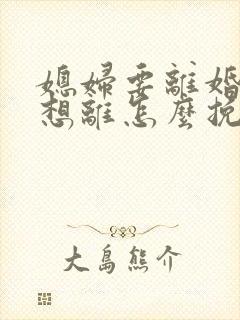 媳婦要離婚
想離怎麼挽
大島熊介